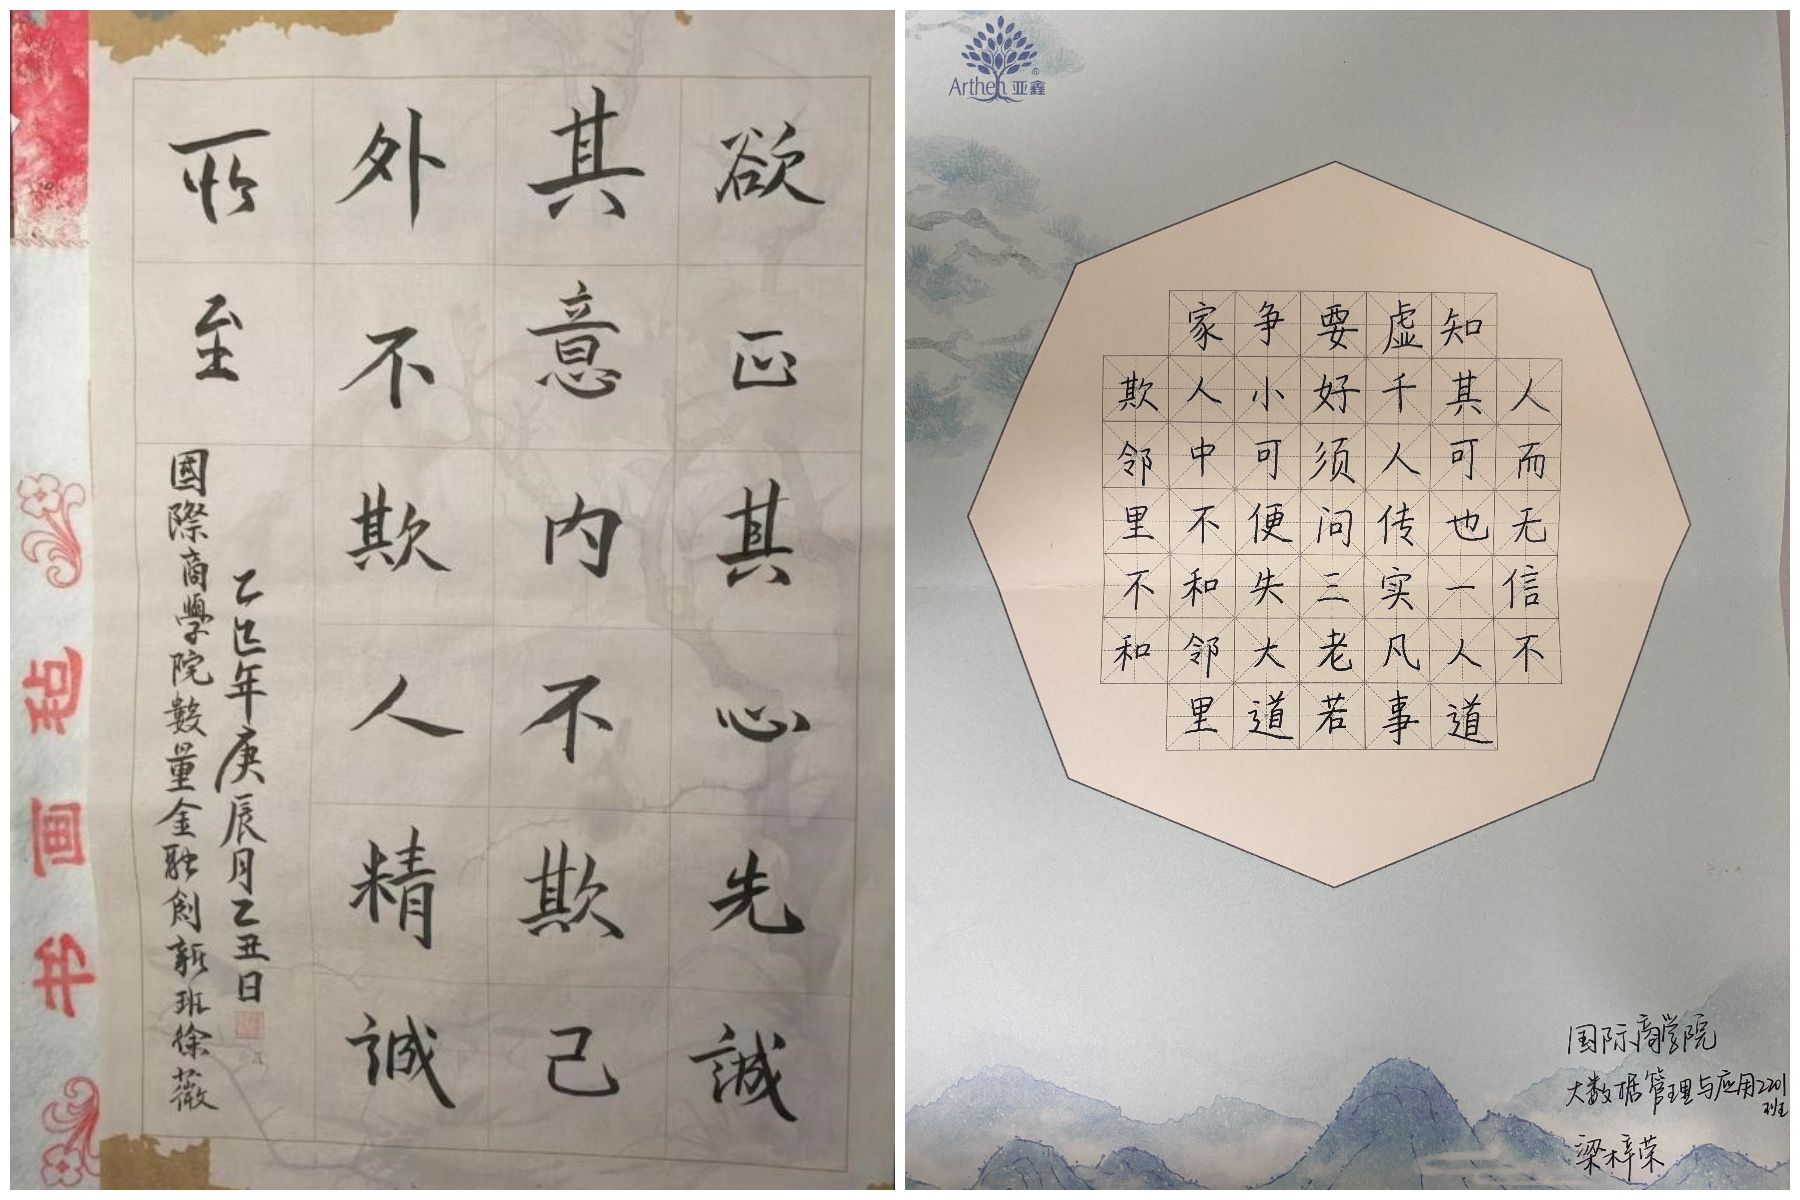 欲正其心先誠
其意内不欺己
外不欺人精誠
所至
乙巳年庚辰月乙丑日
國際商學院數量金融創新班徐薇
书画毡
Arthen 亚鑫
人而无信不
知其可也一人道
虚千人传实凡事
要好须问三老若
争小可便失大道
家人中不和邻里
欺邻里不和
国际商学院
大数据管理与应用2201
班
梁梓荣